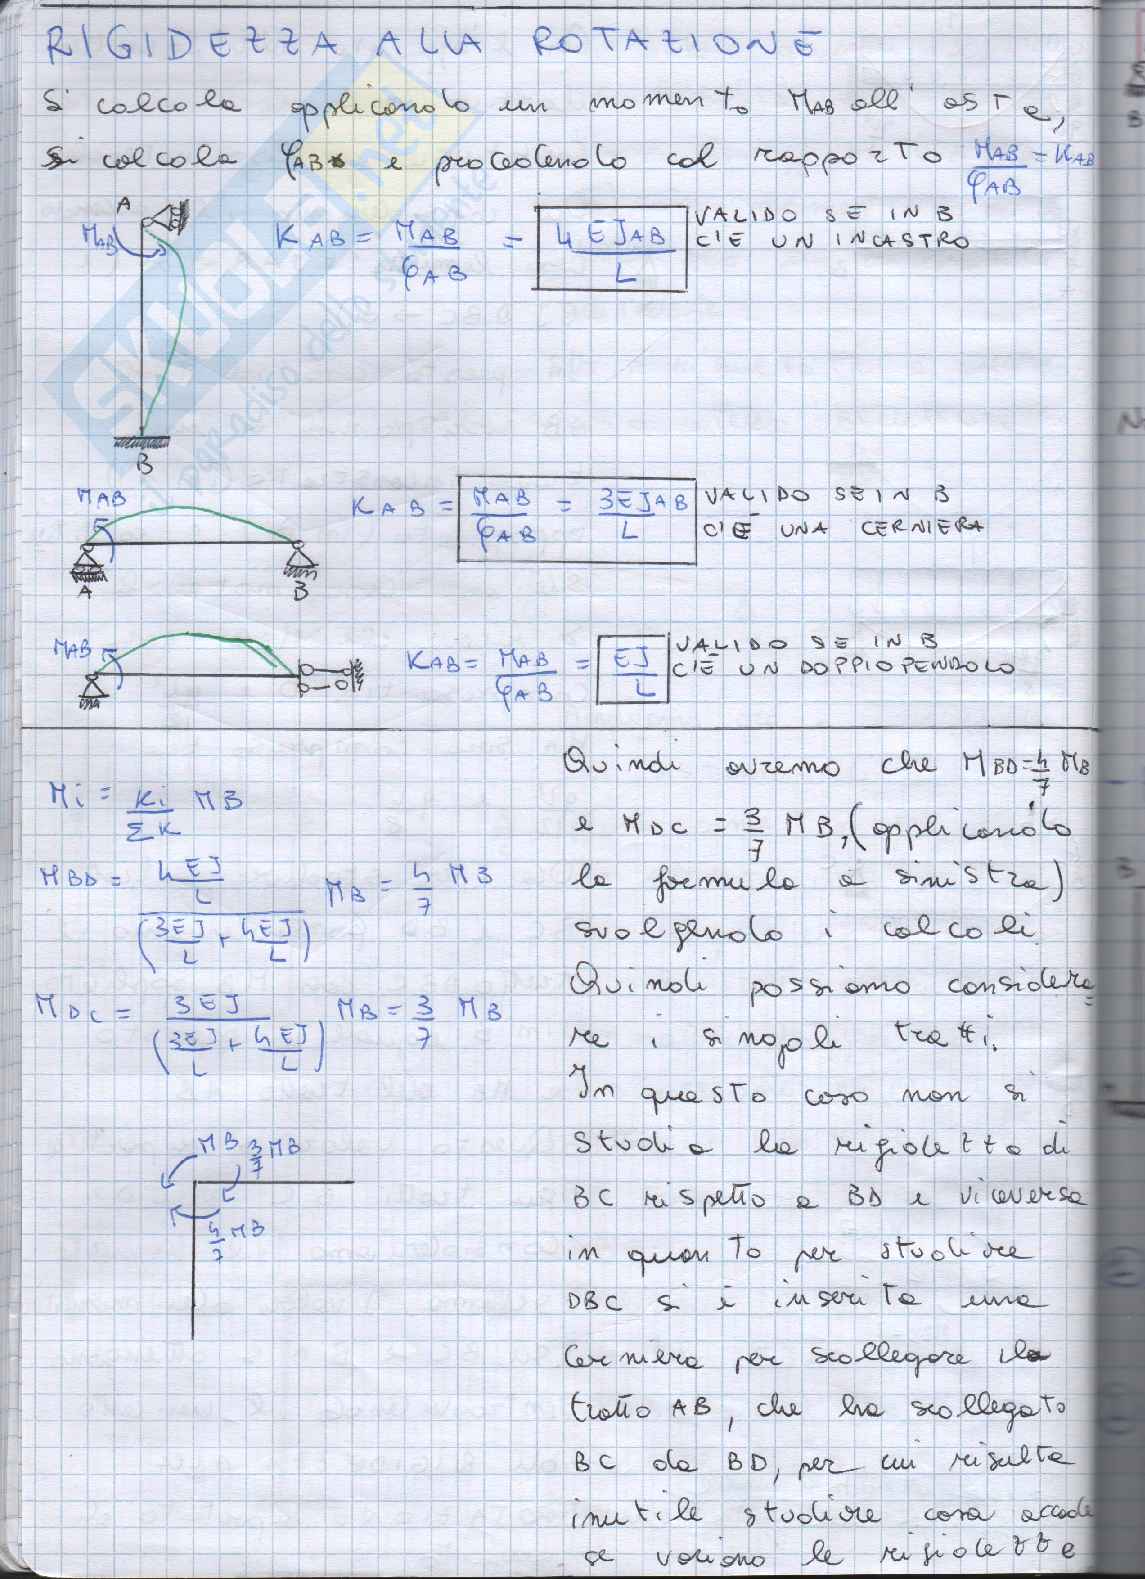 RIGIDEZZA ALLA ROTAZIONE
Si calcola applicando un momento MAB all' asta,
si calcola φAB e procedendo col rapporto MAB/φAB = KAB
A
MAB
KAB = MAB/φAB = 4EJAB/L
VALIDO SE IN B
C'È UN INCASTRO
B
MAB
KAB = MAB/φAB = 3EJAB/L
VALIDO SE IN B
C'È UNA CERNIERA
A
B
MAB
KAB = MAB/φAB = EJ/L
VALIDO SE IN B
C'È UN DOPPIO PENDOLO
Mi = Ki/ΣK MB
MBD = (4EJ/L)/(3EJ/L + 4EJ/L) MB = 4/7 MB
MDC = 3EJ/(3EJ/L + 4EJ/L) MB = 3/7 MB
MB 3/7 MB
4/7 MB
Quindi avremo che MBD = 4/7 MB
e MDC = 3/7 MB, (applicando
la formula a sinistra)
svolgendo i calcoli.
Quindi possiamo considera=
re i singoli tratti.
In questo caso non si
studia la rigidezza di
BC rispetto a BD e viceversa
in quanto per studiare
DBC si è inserita una
cerniera per scollegare il
tratto AB, che ha scollegato
BC da BD, per cui risulta
inutile studiare cosa accade
se variano le rigidezze
SKUOLA.net
il paradiso dello studente